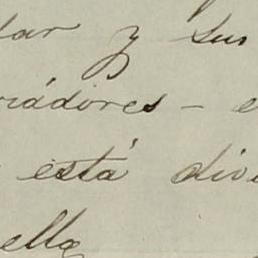 lar y sus
iádores - e
está divi
ella